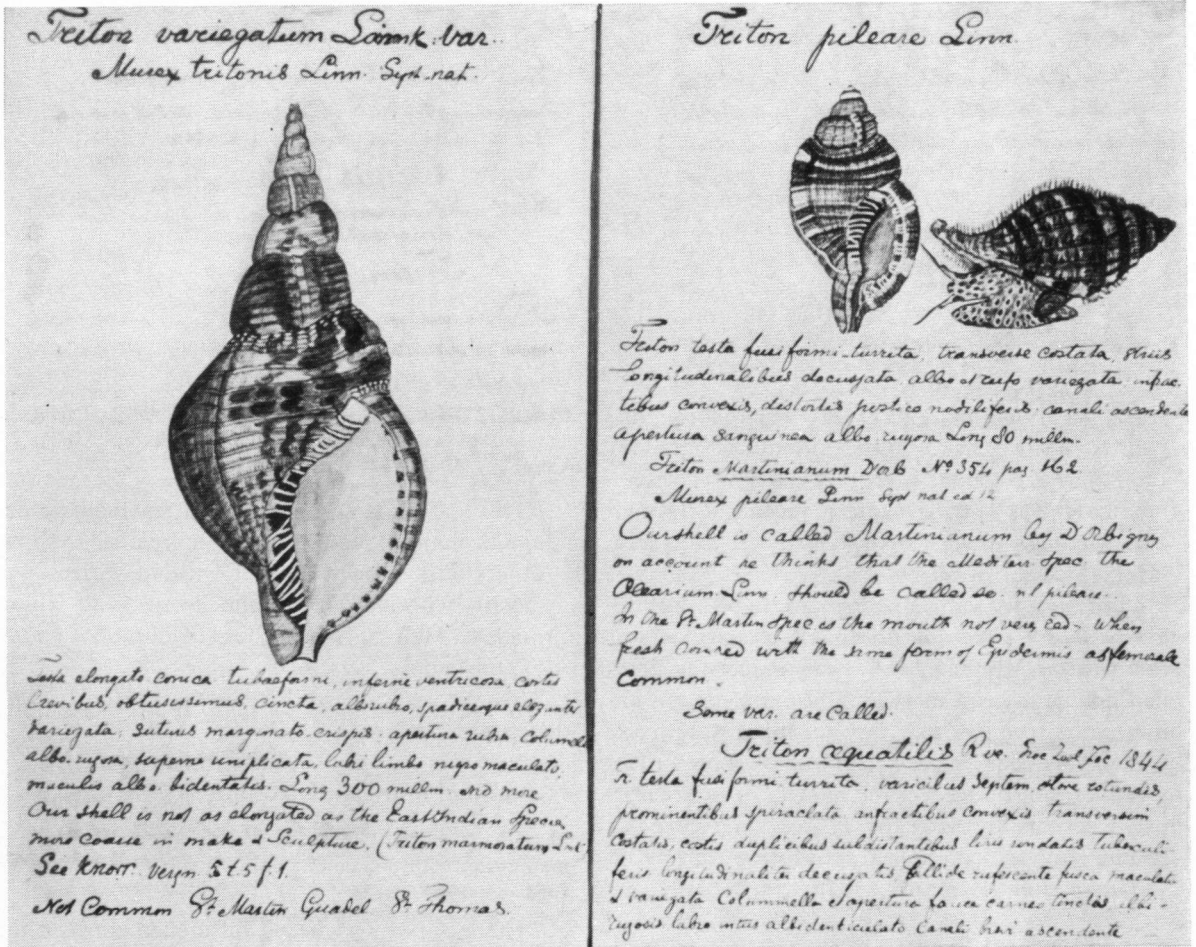 Triton variegatum Lamk. var.
Murex tritonis Linn. Syst. nat.
Testa elongato conica tubaeformi, inferne ventricosa, costis
laevibus, obtusissimis, cincta, albo rubro, spadiceoque eleganter
variegata, suturis marginato crispis. apertura rubra Columella
albo. rugosa, superne uniplicata, labri limbo nigro maculato,
maculis albo. bidentatis. Long 300 millm. and more
Our shell is not as elongated as the East Indian Specie,
more coarse in make & Sculpture. (Triton marmoratum
See Knorr. Vergn 5 t. 5 f. 1.
Not Common St. Martin Guadel St. Thomas.
Triton pileare Linn.
Triton testa fusiformi-turrita, transverse costata, striis
longitudinalibus decussata albo et rufo variegata. anfrac
tibus convexis, distortis postice nodiliferis. canali ascendente
apertura sanguinea albo. rugosa Long 80 millm.
Triton Martinianum D'orb No 354 pag 162
Murex pileare Linn Syst nat ed 12
Our shell is called Martinianum by D'Orbigny
on account he thinks that the Mediterr Spec the
Olearium Linn. should be called so. nl pileare.
In the St. Martin Spec is the mouth not very red - When
fresh covered with the same form of Epidermis as femorale
Common.
Some var. are called.
Triton aquatilis Rve. Proc Zool Soc 1844
Tr. testa fusiformi turrita, varicibus septem, rotundis,
prominentibus spiraclata anfractibus convexis transversim
Costatis, costis duplicibus subdistantibus liris undatis tuberculi
feris longitudinaliter decussatis Pallide rufescente fusca maculata
& variegata Columella & apertura fauce carneo tinctis albi-
rugosis labro intus albidenticulato Canali brevi ascendente